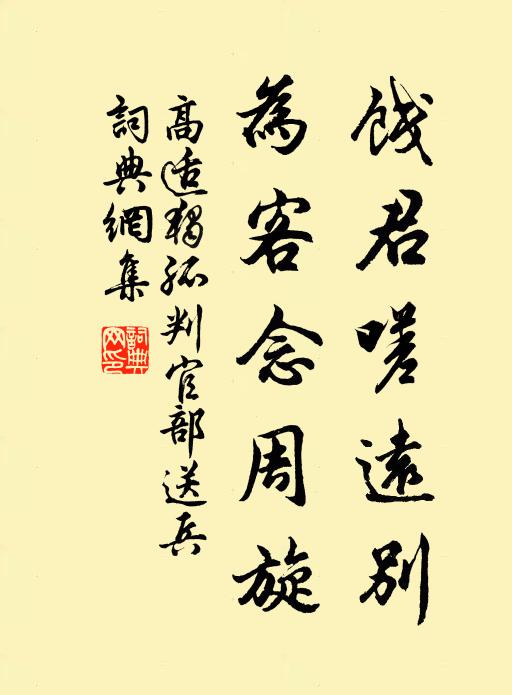 餞君嗟遠別
為客念周旋
高适獨孤判官部送兵
詞典網集
詞典網印